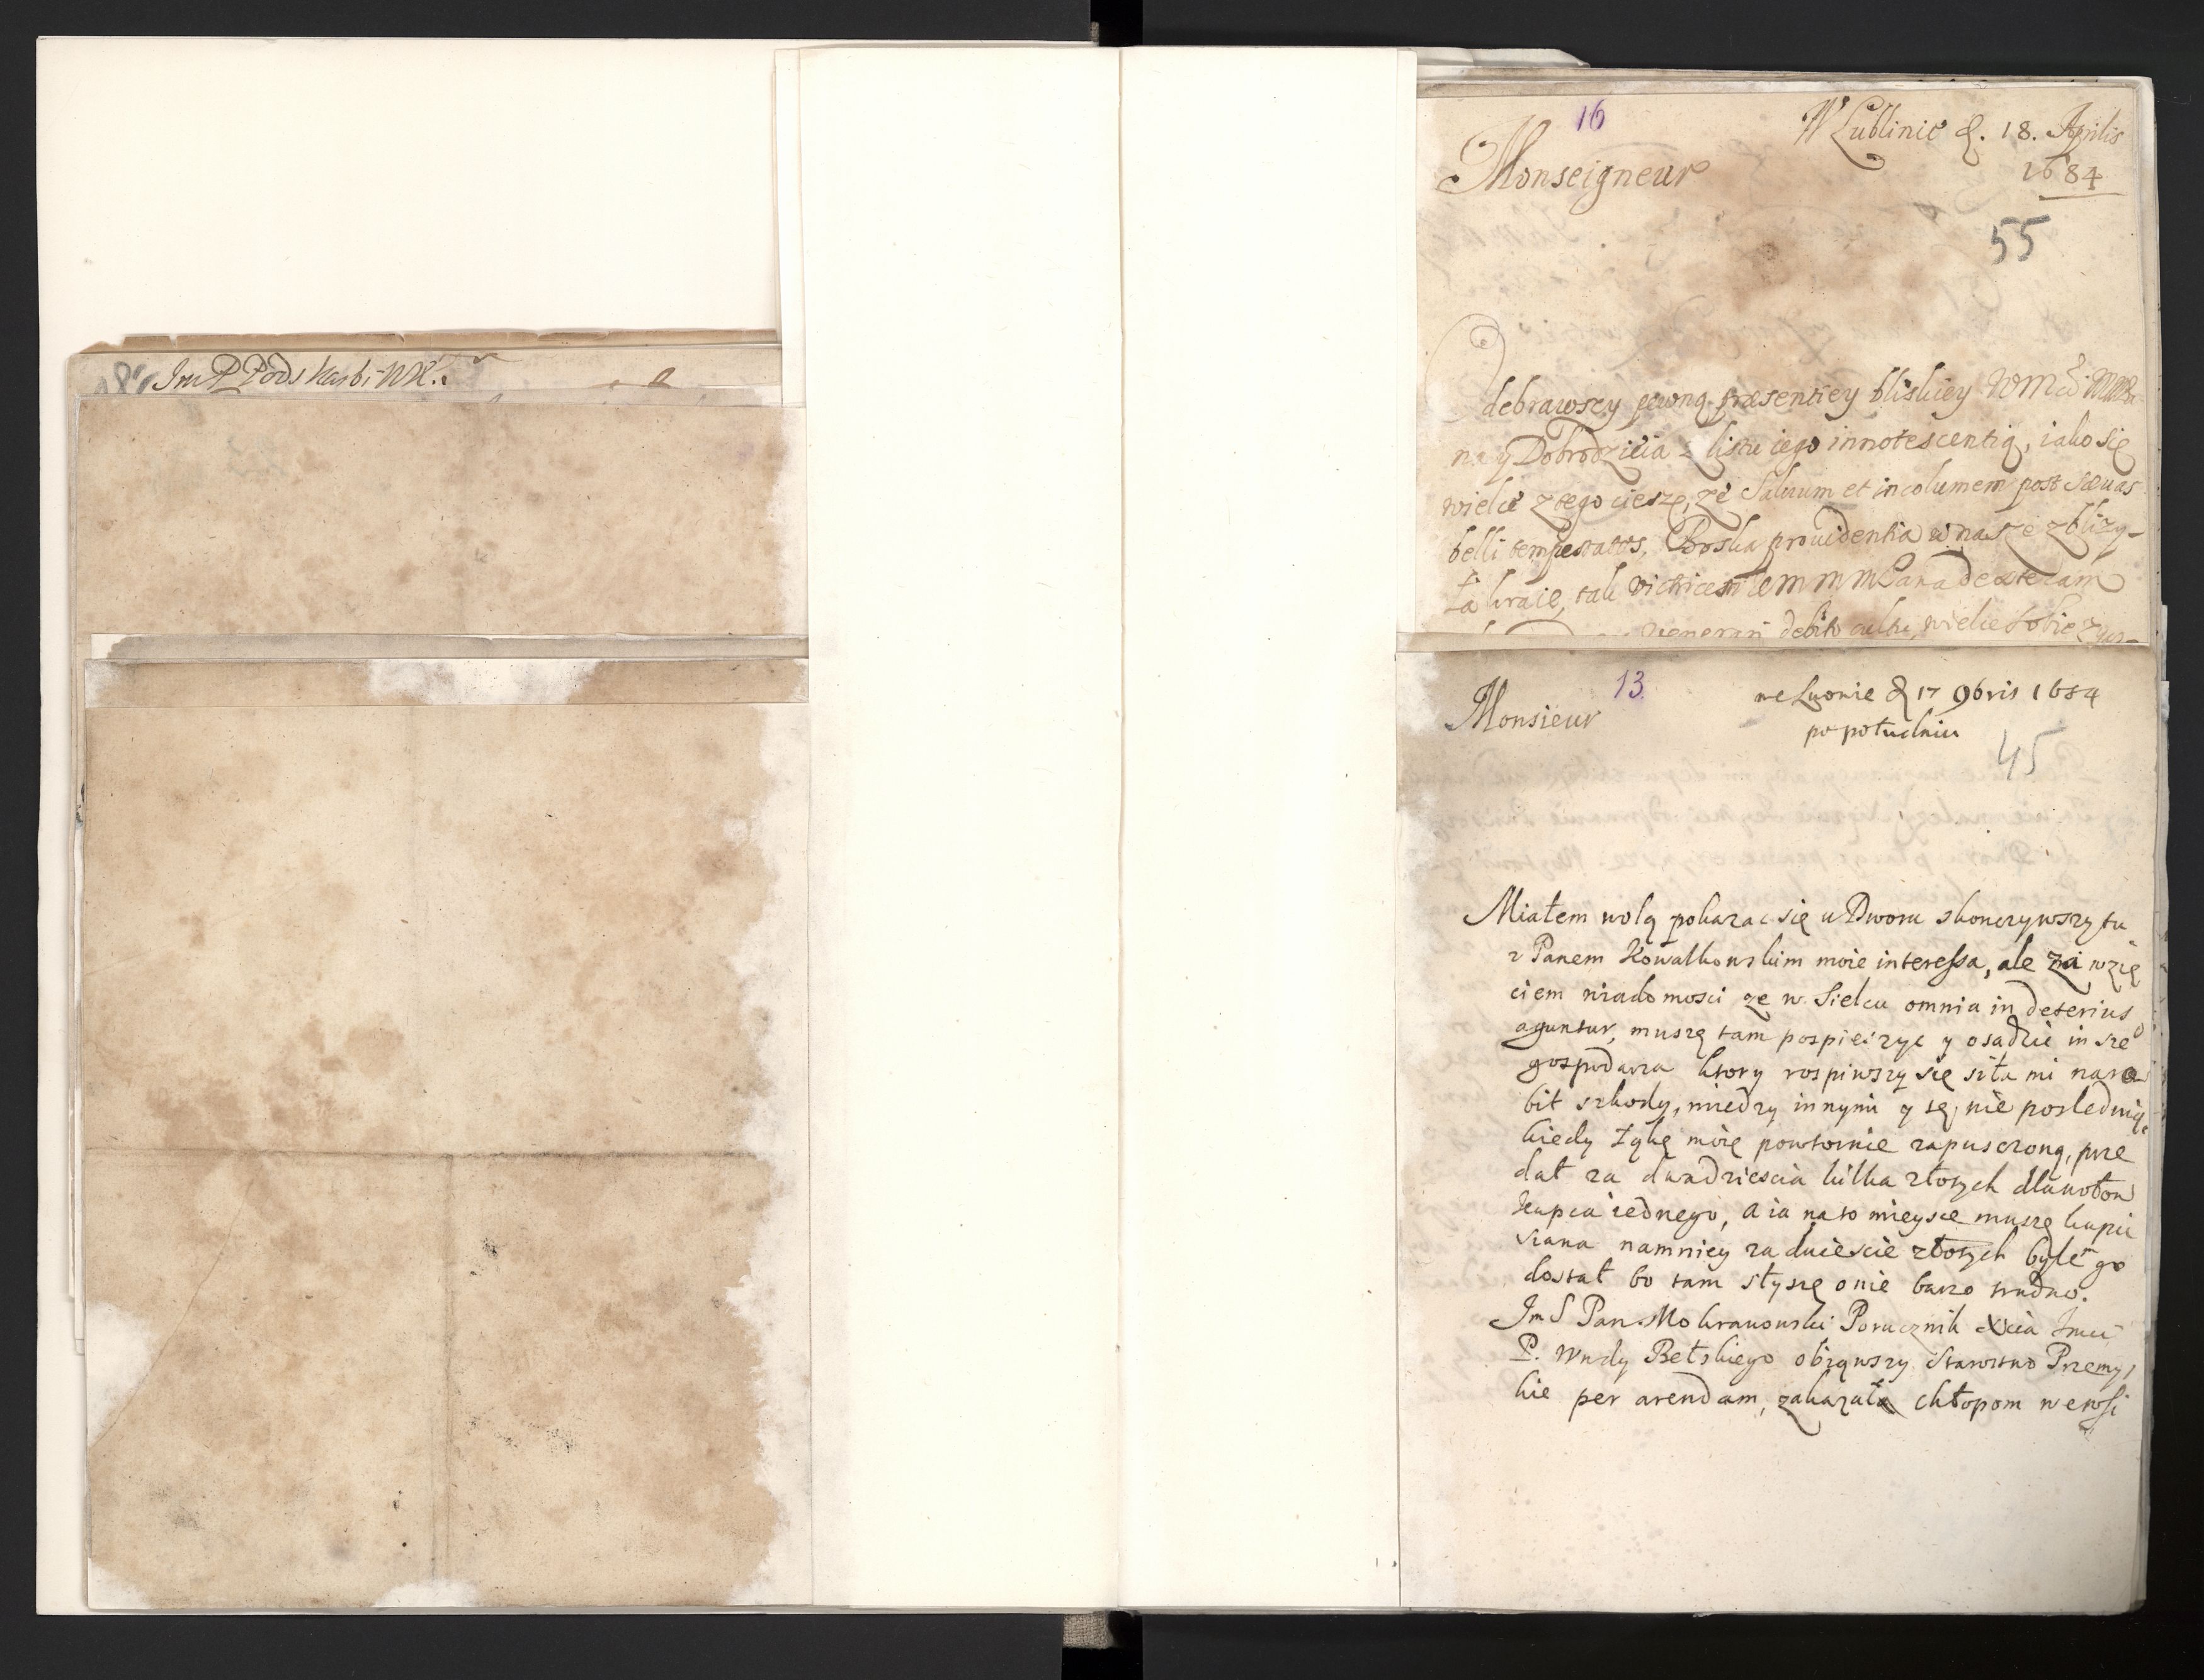 Im P Pods karbi WX.
16
W Lublinie d. 18. Aprilis
1684
Monseigneur
55
Odebrawszy pewną praesentiey bliskiey WMci
na y Dobrodzieia z listu iego innotescentią, iako się
wielce z tego cieszę, że Saluum et incolumem post saeuas
belli tempestates, Boska prouidentia w nasze zbliży-
ła kraie, tak victricem WMMMPana dexteram
venerari debito cultu, wielce sobie
13
we Lwowie d 17 9bris 1684
po południu
Monsieur
45
Miałem wolą pokazac się u Dworu skonczywszy tu
z Panem Kowalkowskim moie interessa, ale za wzię
ciem wiadomosci ze w Sielcu omnia in deterius
aguntur, muszę tam pospieszyc y osadzic insze
gospodarza ktory rospiwszy się siła mi naro
bił szkody, miedzy innymi y tę nie poslednią
kiedy łąkę moię powtornie zapuszczoną, prze
dał za dwadziescia kilka złotych dla wołow
kupca iednego, a ia na to mieysce muszę kupic
siana namniey za dwiescie złotych byle go
dostał bo tam słyszę o nie barzo trudno.
Im S Pan Mokranowski Porucznik Xcia Imci
P. Wwdy Bełskiego obiąwszy Starostwo Przemys
kie per arendam, zakazał chłopom we wsi